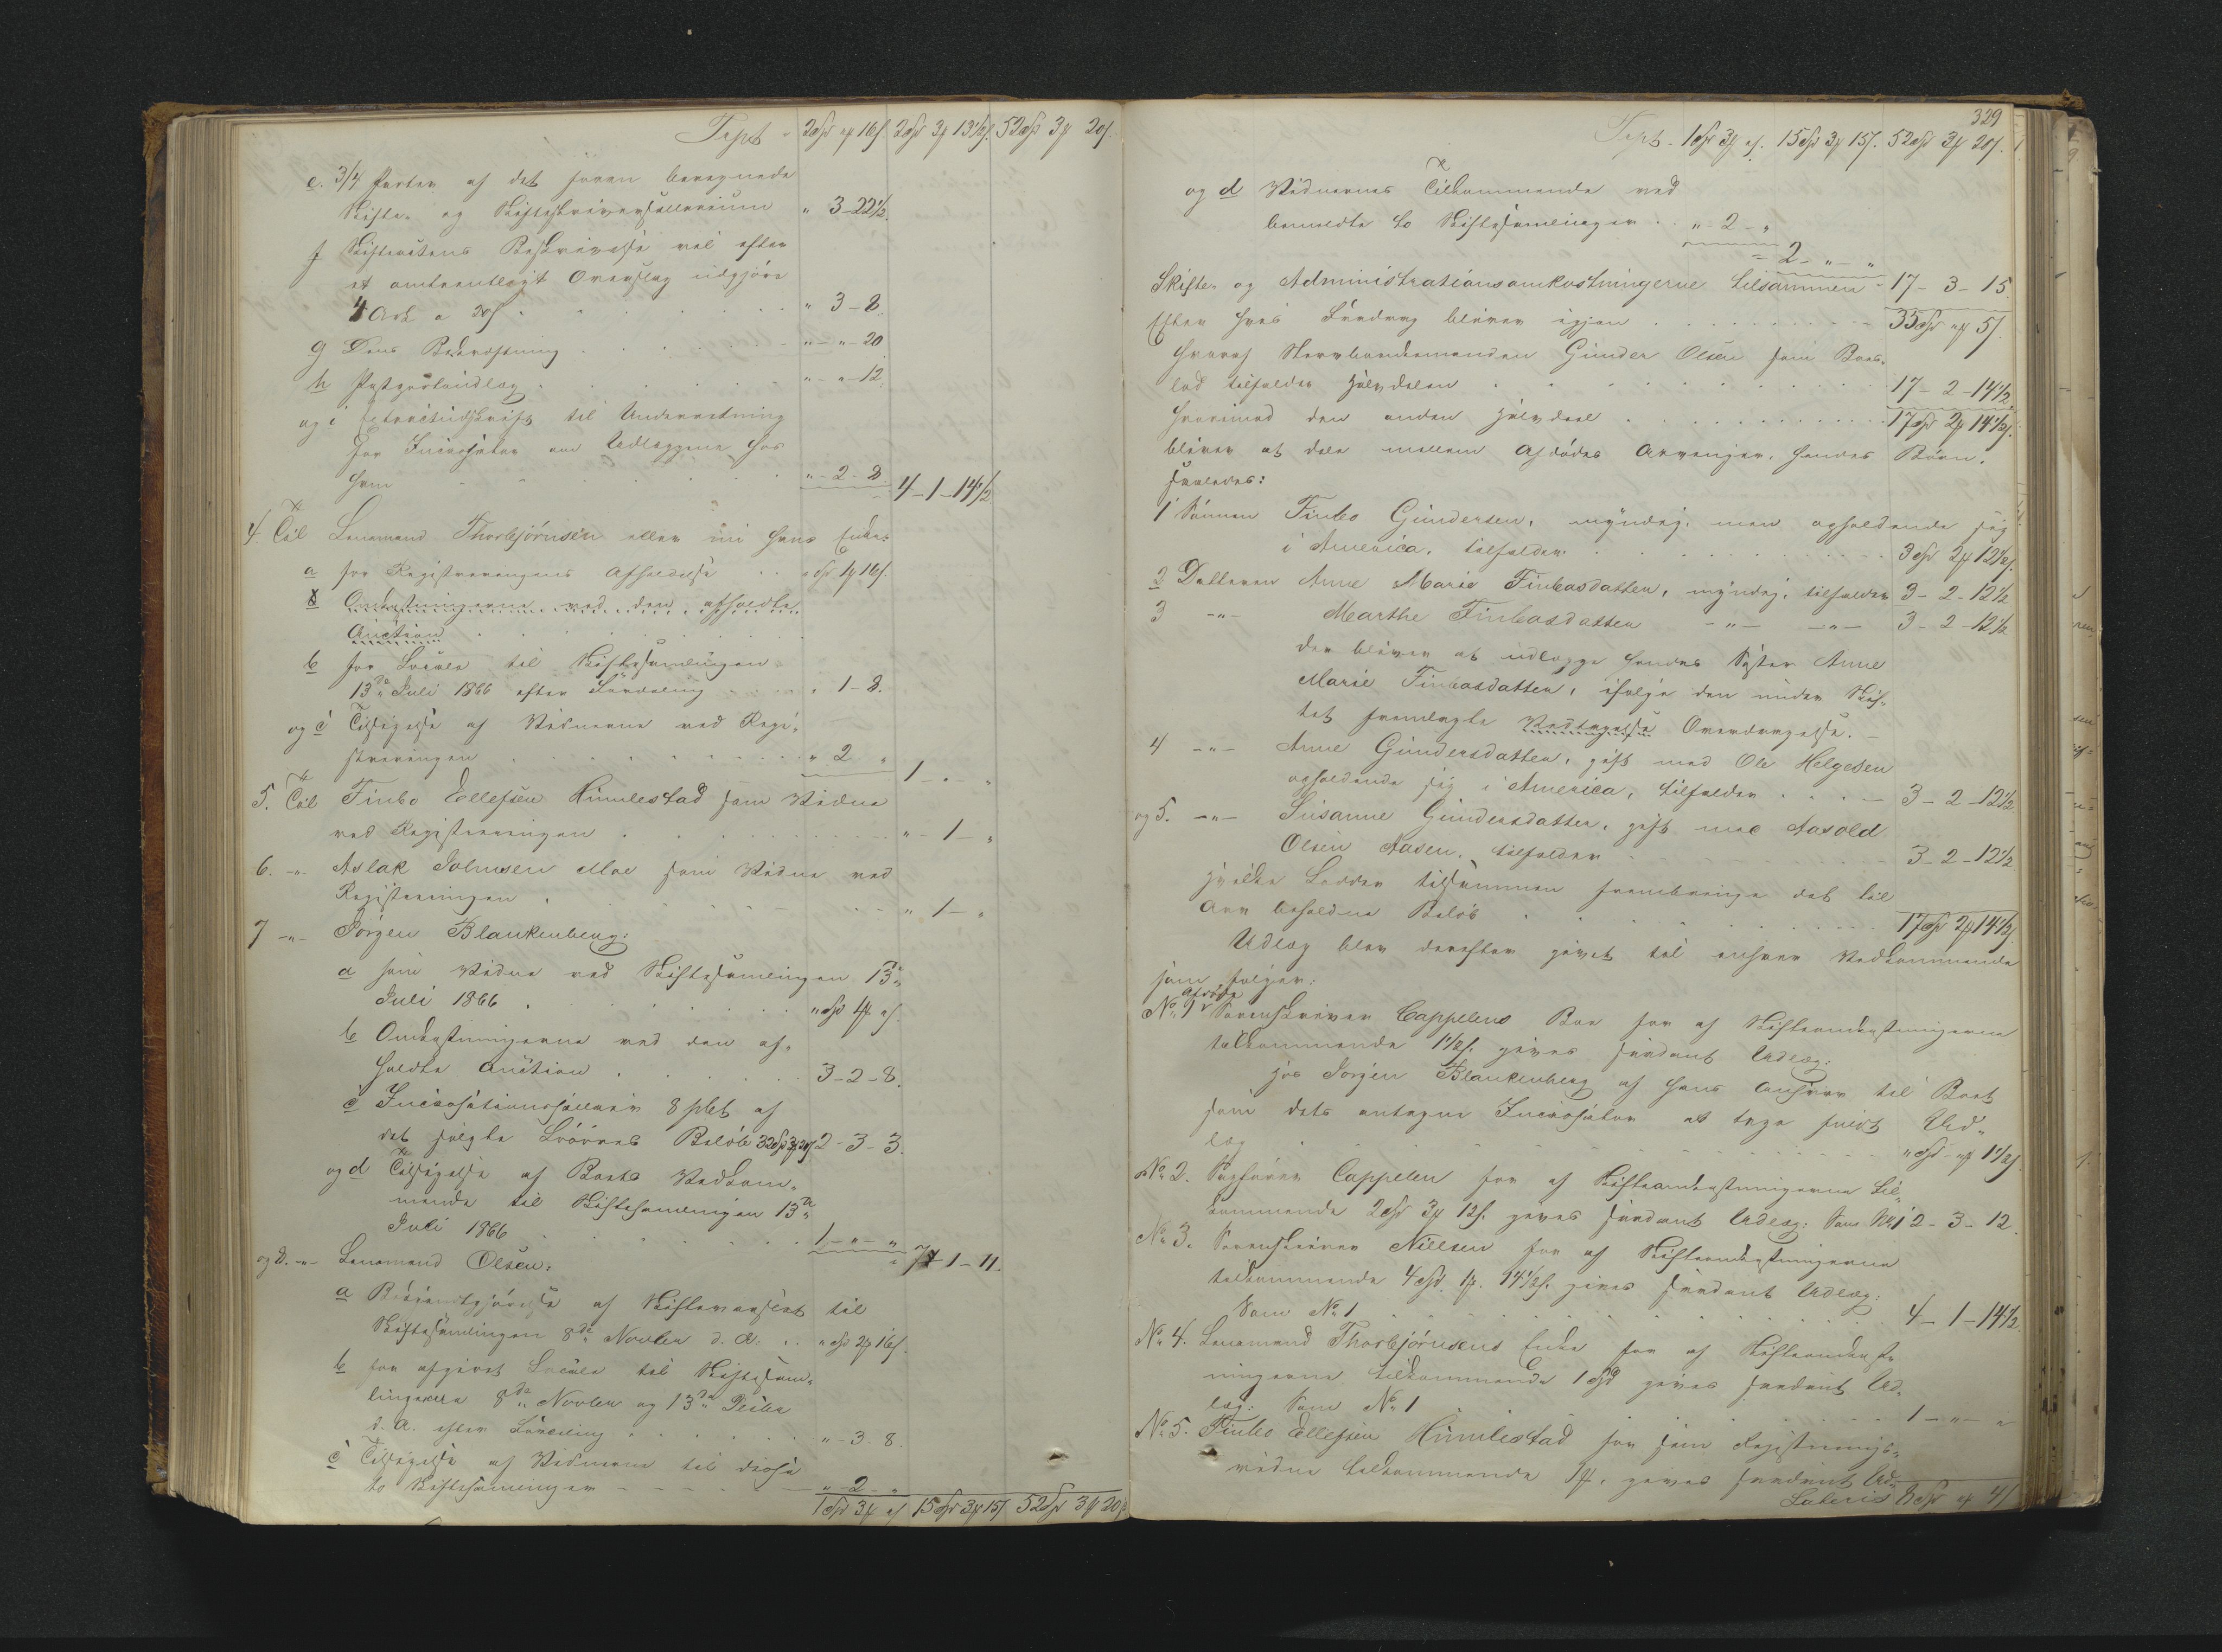 Tept - 2Spd " 16s. 2Spd 3# 13½s. 52Spd 3# 20s.
e. 3/4 Parten af det foran beregnede
Skifte- og Skifteskriversallarium " 3-22½.
f Skifteaktens Beskrivelse vil efter
et omtrentligt Overslag udgjøre
4 Ark a 20s . . . " 3-8.
g Dens Bekræftning . . . "-"-20
h Protocolindlæg . . . "-"-12.
og i Extractudskrift til Underretning
for Incassator om Udlæggene hos
ham . . . "-2-8. 4-1-14½
4. Til Lensmand Thorbjørnsen eller nu hans Enke:
a for Registreringens Afholdelse . . "Spd 1# 16s.
b Omkostningerne ved den afholdte
Auction . . .
b for Locale til Skiftesamlingen
13de Juli 1866 efter Fordeling . . . " 1-8.
og c Tilsigelse af Vidnerne ved Regi-
streringen . . . " 2 " 1-"-"
5. Til Finbo Ellefsen Himlestad som Vidne
ved Registreringen . . . "-1-"
6. -"- Aslak Johnsen Moe som Vidne ved
Registreringen . . . " 1-"
7 -"- Jørgen Blankenberg:
a som Vidne ved Skiftesamlingen 13de
Juli 1866 . . . "Spd 1# "s.
b Omkostningerne ved den af-
holdte Auction . . . 3-2-8.
c Incassationssallair 8 pCt af
det solgte Løsøres Beløb 32Spd 3# 20s 2-3-3.
og d Tilsigelse af Boets Vedkom-
mende til Skiftesamlingen 13de
Juli 1866 . . . 1-"-" 7-1-11.
og 8. -"- Lensmand Olsen:
a Bekjendtgjørelse af Skiftevarslet til
Skiftesamlingen 8de Novbr d. A. . . "Spd 2# 16s.
b for afgivet Locale til Skiftesam-
lingerne 8de Novbr og 13de Decbr
d. A. efter Fordeling . . . "-3-8.
c Tilsigelse af Vidnerne til disse
to Skiftesamlinger - - - "-2-"
1Spd 3# "s 15Spd 3# 15s 52Spd 3# 20s
329
Tept - 1Spd 3# "s. 15Spd 3# 15s. 52Spd 3# 20s.
og d Vidnernes Tilkommende ved
bemeldte to Skiftesamlinger . . "-2-"
- 2-"-"
Skifte- og Administrationsomkostningerne tilsammen - 17-3-15.
Efter hvis Fradrag bliver igjen . . . 35Spd "# 5s.
hvoraf Stervboenkemanden Gunder Olsen som Boes-
lod tilfalder Halvdelen . . . 17-2-14½.
hvorimod den anden Halvdeel . . . 17Spd 2# 14½s.
bliver at dele mellem Afdødes Arvinger, hendes Børn,
saaledes:
1 Sønnen Finbo Gundersen, myndig, men opholdende sig
i America, tilfalder . . . 3Spd 2# 12½s.
2 Datteren Anne Marie Finbosdatter, myndig, tilfalder 3-2-12½
3 -"- Marthe Finbosdatter -"- -"- 3-2-12½
der bliver at udlægge hendes Søster Anne
Marie Finbosdatter, ifølge den under Skif-
tet fremlagte Vedtagelse Overdragelse. -
4 -"- Anne Gundersdatter, gift med Ole Helgesen
opholdende sig i America, tilfalder . . . - 3-2-12½
og 5. -"- Susanne Gundersdatter, gift med Aasold
Olsen Aasen, tilfalder . . . 3-2-12½
hvilke Lodder tilsammen frembringe det til
Arv beholdne Beløb . . . 17Spd 2# 14½s.
Udlæg blev derefter givet til enhver Vedkommende
som følger:
No 1 afdøde Sorenskriver Cappelens Boe for af Skifteomkostningerne
tilkommende 1½s. gives saadant Udlæg:
hos Jørgen Blankenberg af hans Ansvar til Boet
som dets antagne Incassator at tage saadt Ud-
læg - - - "Spd "# 1½s.
No 2. Sagfører Cappelen for af Skifteomkostningerne til-
kommende 2Spd 3# 12s. gives saadant Udlæg: Som No 1 2-3-12.
No 3. Sorenskriver Nielsen for af Skifteomkostningerne
tilkommende 4Spd. 1#. 14½s. gives saadant Udlæg:
Som No 1 . . . 4-1-14½.
No 4. Lensmand Thorbjørnsens Enke for af Skifteomkost-
ningerne tilkommende 1Spd gives saadant Ud-
læg: Som No 1 . . . 1-"-"
No 5. Finbo Ellefsen Himlestad for som Registrerings-
vidne tilkommende 1#. gives saadant Ud-
Lateris 8Spd "# 4s